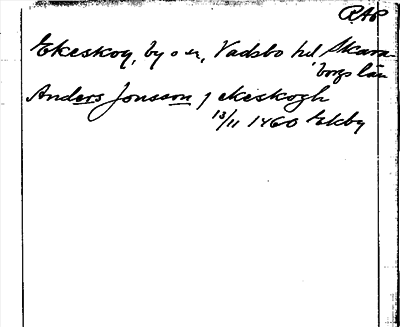 RAP
Ekeskog, by o sn, Vadsbo hd Skara
borgs län
Anders Jonsson j ekeskogh
13/11 1460 Ekby